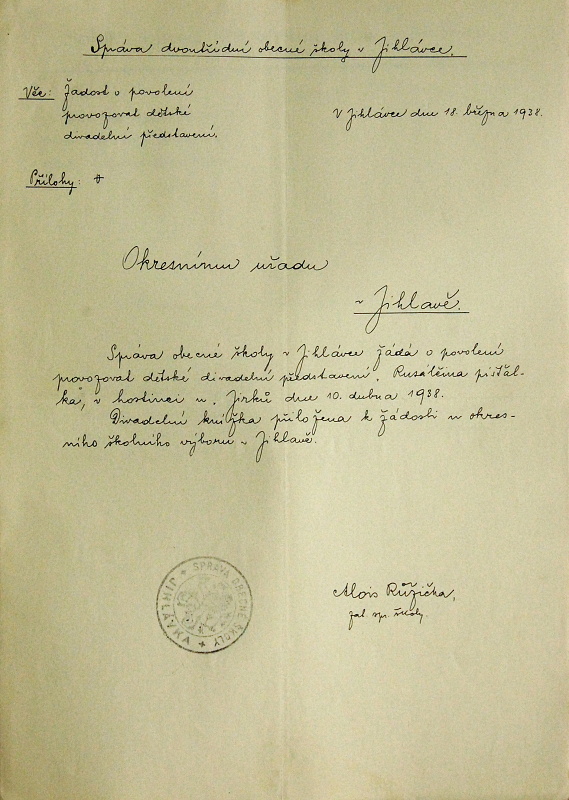 Správa dvoutřídní obecné školy v Jihlávce.
Věc: Žádost o povolení
provozovat dětské
divadelní představení.
V Jihlávce dne 18. března 1938.
Přílohy:
Okresnímu úřadu
v Jihlavě.
Správa obecné školy v Jihlávce žádá o povolení
provozovat dětské divadelní představení „Rusalčina píšťal-
ka“, v hostinci u. Jirků dne 10. dubna 1938.
Divadelní knížka přiložena k žádosti u okres-
ního školního výboru v Jihlavě.
SPRÁVA OBECNÉ ŠKOLY
Alois Růžička,
sp. školy.